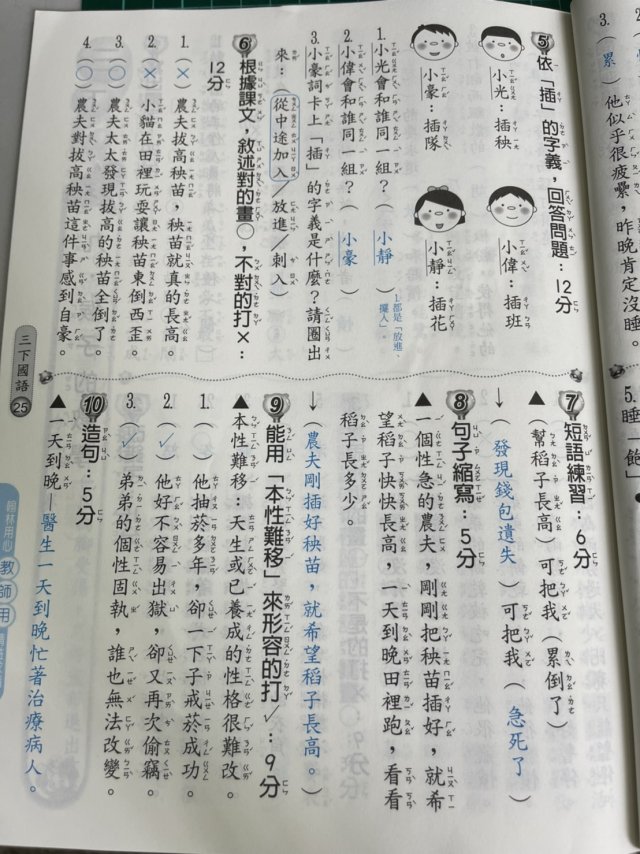 3.（累）他似乎很疲累，昨晚肯定沒睡。
5.睡「飽」
5 依「插」的字義，回答問題：12分
小光：插秧
小偉：插班
小豪：插隊
小靜：插花
1.小光會和誰同一組？（小靜）
1.都是「放進、
擺人」。
2.小偉會和誰同一組？（小豪）
3.小豪詞卡上「插」的字義是什麼？請圈出
來：（從中途加入／放進／刺入）
6 根據課文，敘述對的畫○，不對的打×：
12分
1.（×）農夫拔高秧苗，秧苗就真的長高。
2.（×）小貓在田裡玩耍讓秧苗東倒西歪。
3.（○）農夫太太發現拔高的秧苗全倒了。
4.（○）農夫對拔高秧苗這件事感到自豪。
7 短語練習：6分
▲幫稻子長高）可把我（累倒了）
↓（發現錢包遺失）可把我（急死了）
8 句子縮寫：5分
▲一個性急的農夫，剛剛把秧苗插好，就希
望稻子快快長高，一天到晚田裡跑，看看
稻子長多少。
↓（農夫剛插好秧苗，就希望稻子長高。）
9 能用「本性難移」來形容的打✓：9分
▲本性難移：天生或已養成的性格很難改。
1.（ ）他抽菸多年，卻一下子戒菸成功。
2.（✓）他好不容易出獄，卻又再次偷竊。
3.（✓）弟弟的個性固執，誰也無法改變。
10 造句：5分
▲一天到晚—醫生一天到晚忙著治療病人。
三下國語
25
翰林用心
教師用